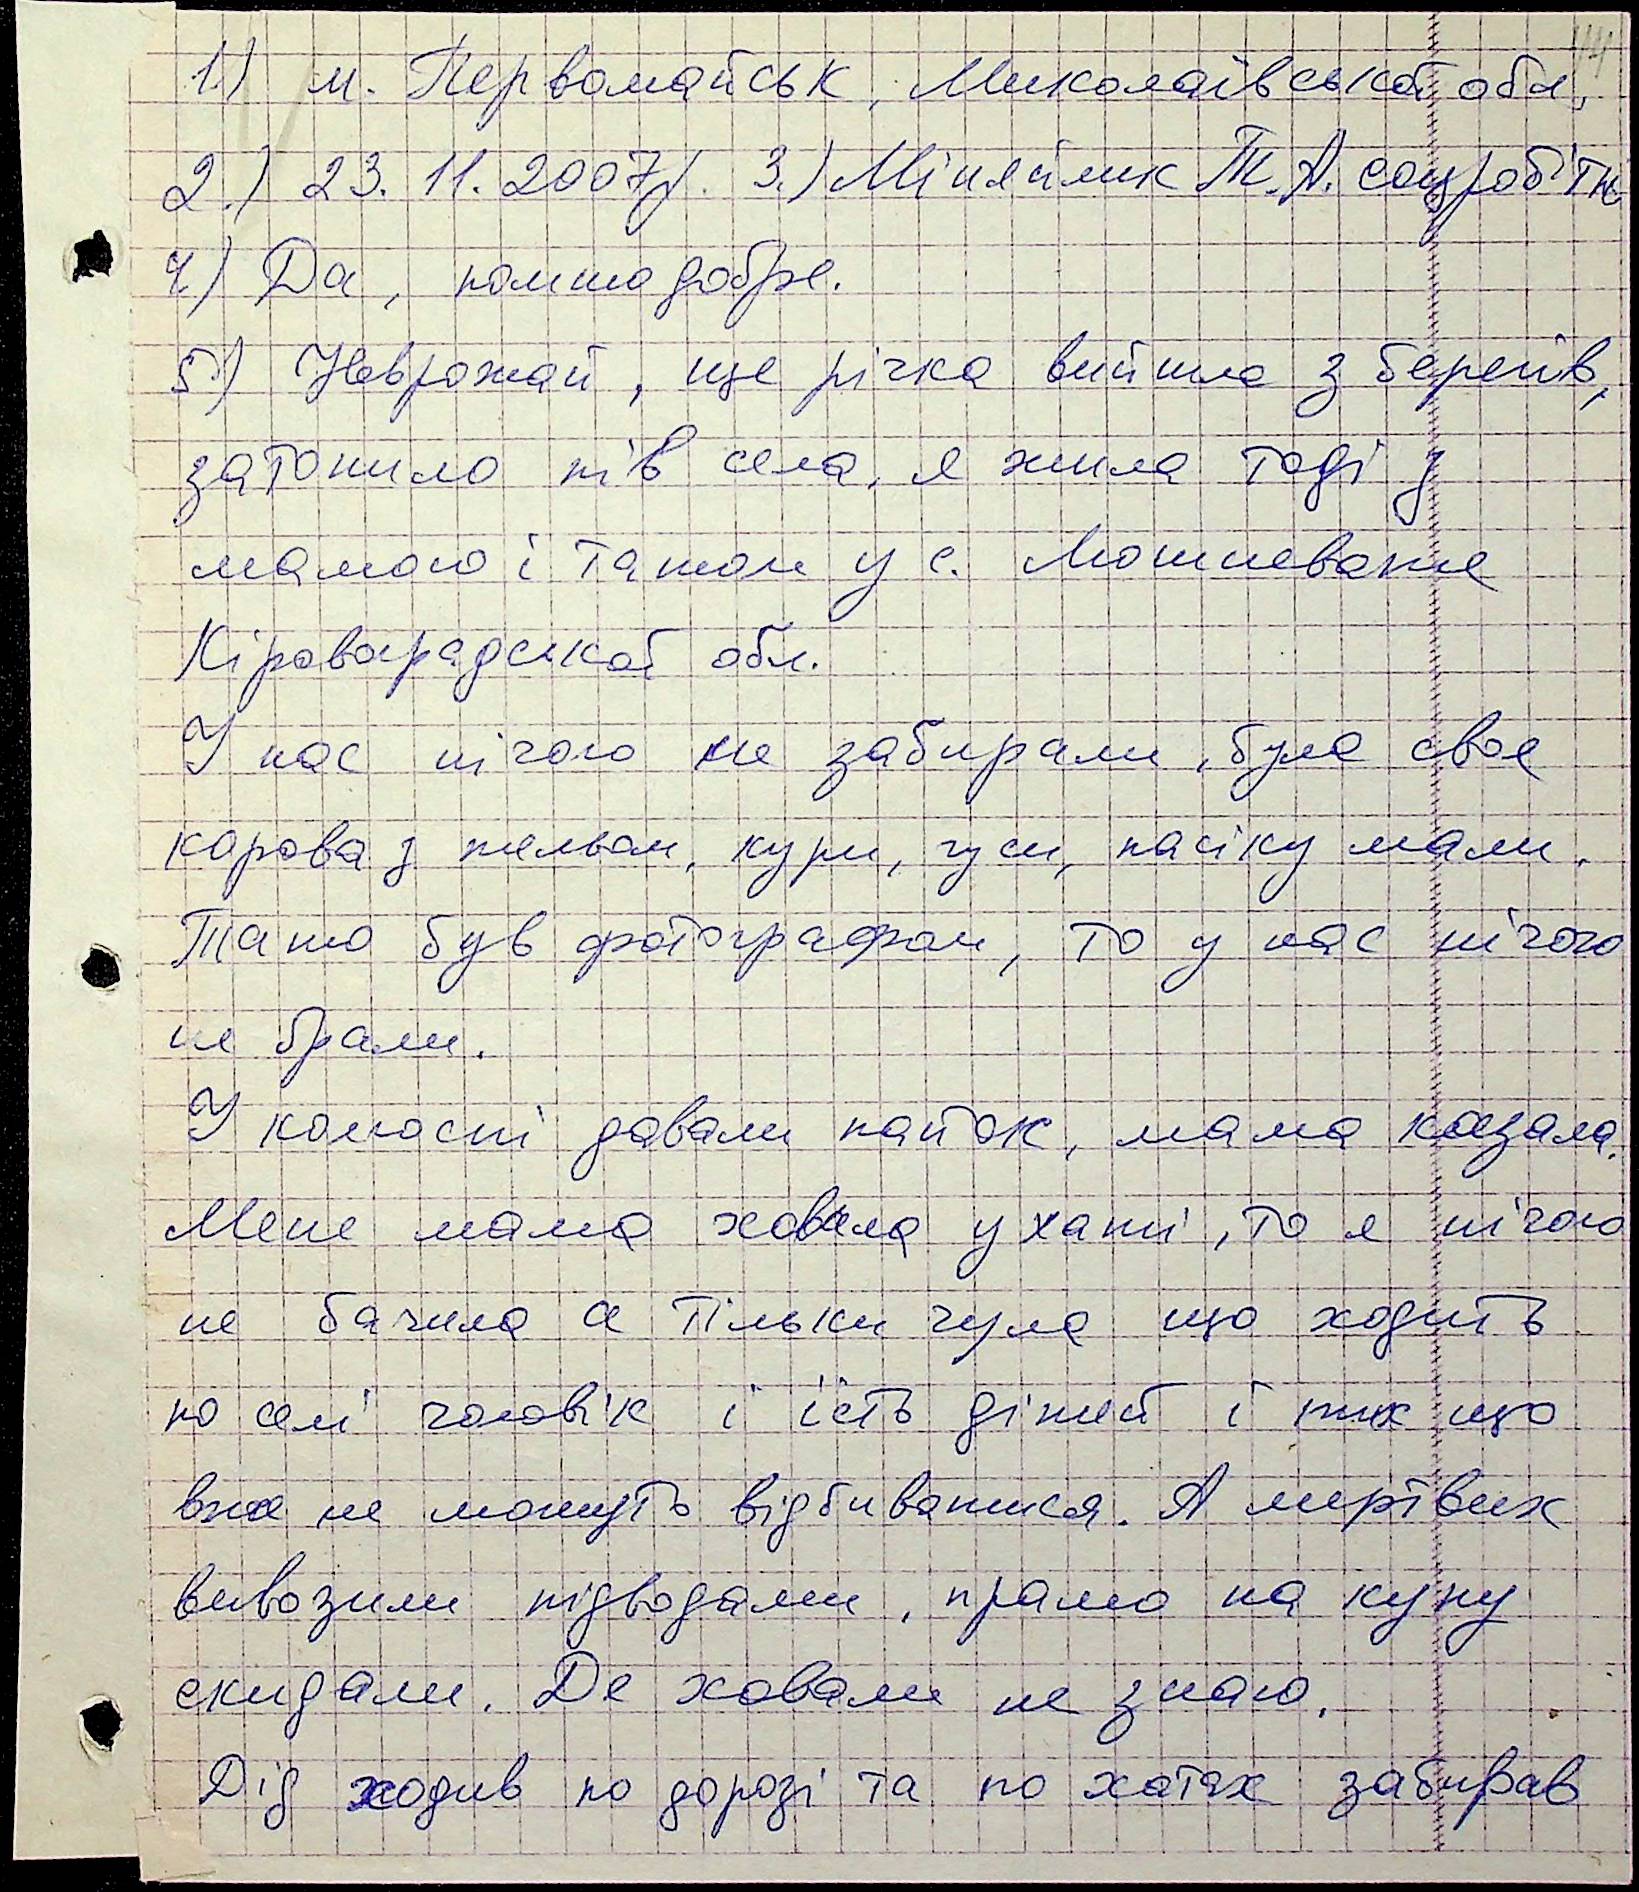 1.) м. Первомайськ, Миколаївської обл,
2.) 23.11.2007р. 3.) Міняйлик Т.А. соцробітн
4.) Да, помню добре.
5.) Неврожай, ще річка вийшла з берегів,
затопило пів села, я жила тоді з
мамою і татом у с.
Кіровоградської обл.
У нас нічого не забирали, була своя
корова з телям, кури, гуси, пасіку мали.
Тато був фотографом, то у нас нічого
не брали.
У колхоспі давали пайок, мама казала.
Мене мама ховала у хаті, то я нічого
не бачила а тільки чула що ходить
по селі чоловік і їсть дітей і тих що
вже не можуть відбиватися. А мертвих
вивозили підводами, прямо на купу
скидали. Де ховали не знаю.
Дід ходив по дорозі та по хатах забирав